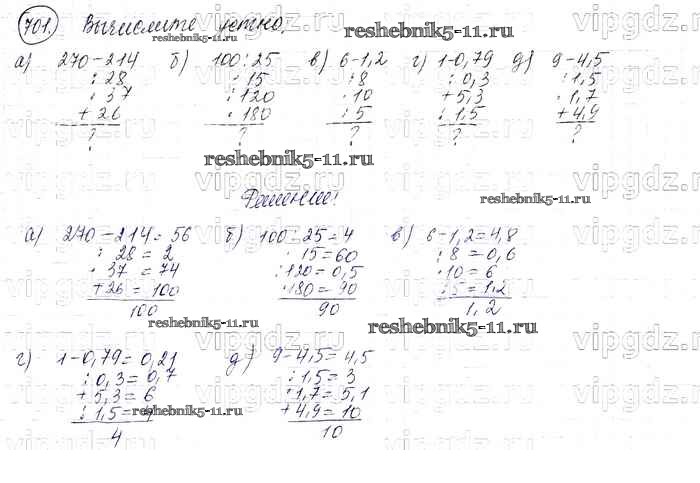 701. Вычислите устно.
а) 270-214 б) 100:25 в) 6-1,2 г) 1-0,79 д) 9-4,5
:28 ·15 :8 :0,3 :1,5
·37 :120 ·10 +5,3 ·1,7
+26 ·180 :5 :1,5 +4,9
? ? ? ? ?
Решение:
а) 270-214=56 б) 100:25=4 в) 6-1,2=4,8
:28=2 ·15=60 :8=0,6
·37=74 :120=0,5 ·10=6
+26=100 ·180=90 :5=1,2
100 90 1,2
г) 1-0,79=0,21 д) 9-4,5=4,5
:0,3=0,7 :1,5=3
+5,3=6 ·1,7=5,1
:1,5=4 +4,9=10
4 10
reshebnik5-11.ru
reshebnik5-11.ru
reshebnik5-11.ru
reshebnik5-11.ru
reshebnik5-11.ru
reshebnik5-11.ru
reshebnik5-11.ru
vipgdz.ru